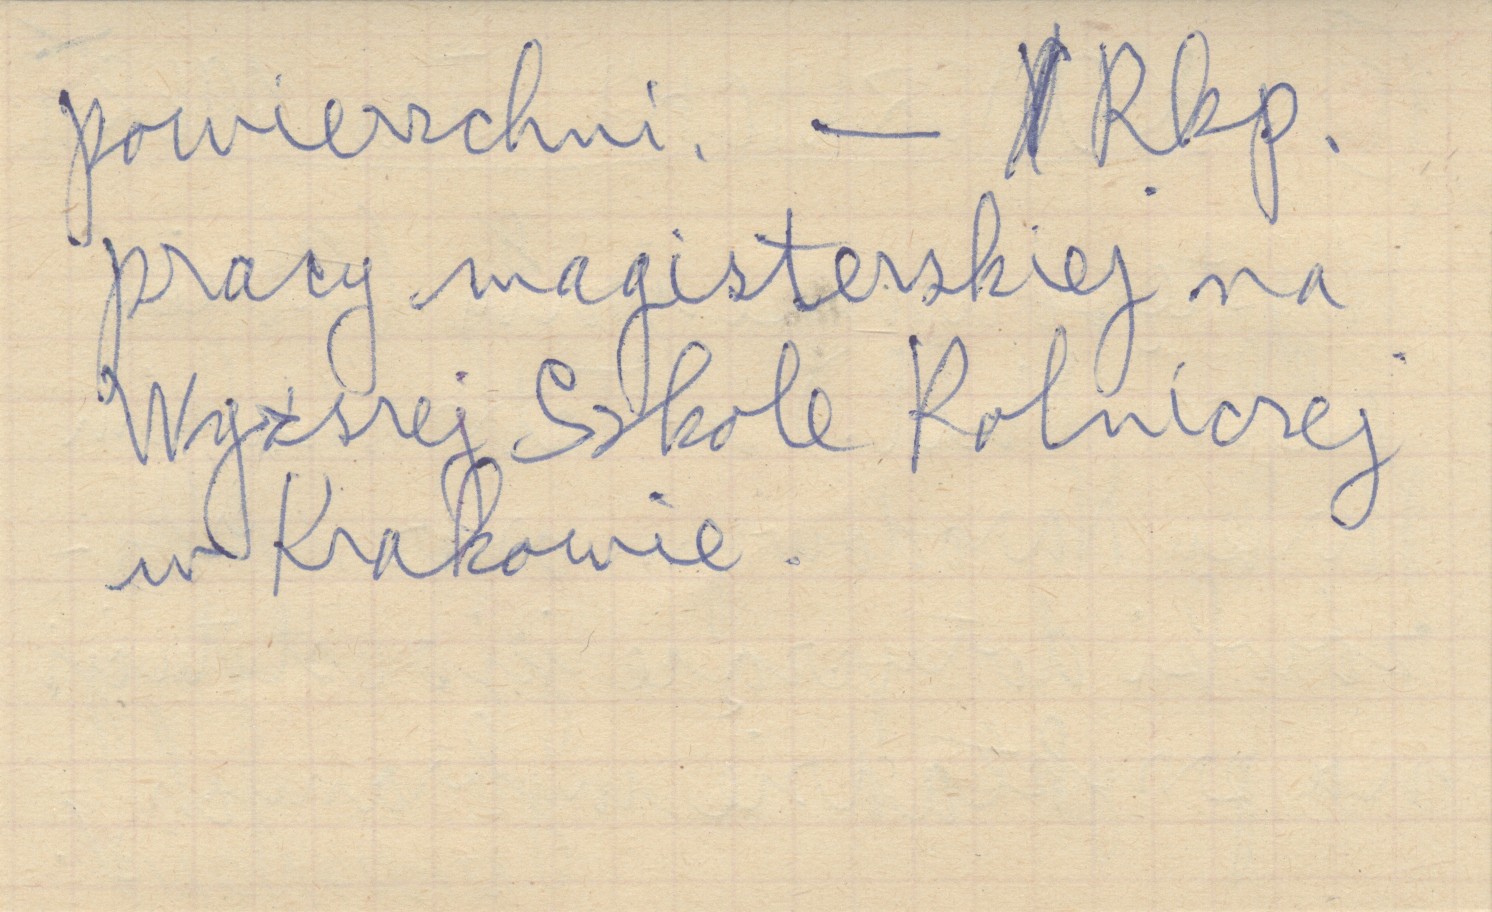 powierzchni. — Rkp.
pracy magisterskiej na
Wyższej Szkole Rolniczej
w Krakowie.